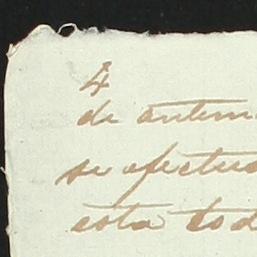 4
de antem
se efectua
esta tod